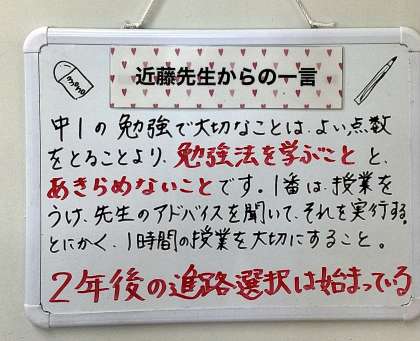 近藤先生からの一言
中1の勉強で大切なことは、よい点数
をとることより、勉強法を学ぶことと、
あきらめないことです。1番は、授業を
うけ、先生のアドバイスを聞いて、それを実行する。
とにかく、1時間の授業を大切にすること。
2年後の進路選択は始まっている